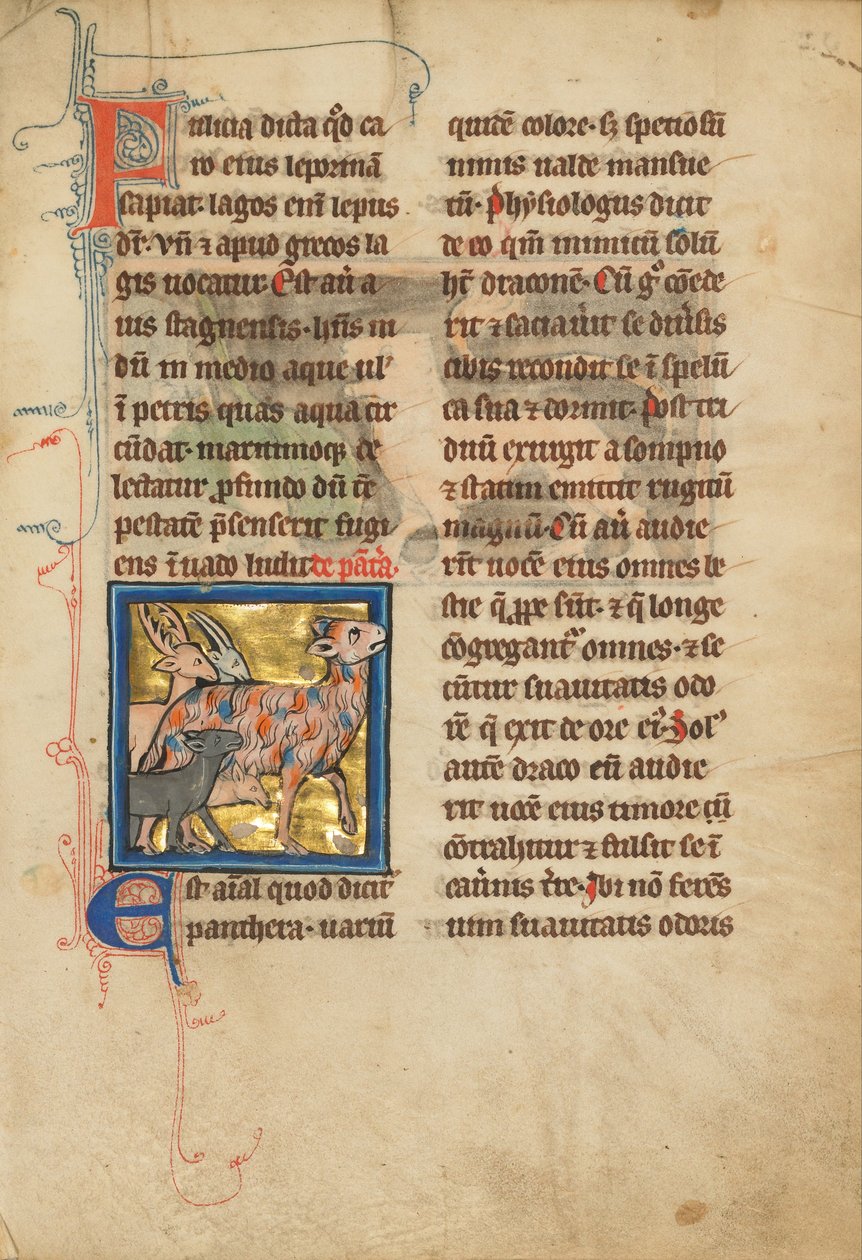 Fulicia dicta q̊d ca
ro eius leporinā
sapiat· lagos enī lepus
dr̄· vn̄ ⁊ apud grecos la
gis uocatur· Est aū a
uis stagnensis· hn̄s ni
dū in medio aque ul'
ī petris quas aqua cir
cūdat· maritimoqꝫ de
lectatur ꝓfundo dū tē
pestatē p̄senserit fugi
ens ī uado ludit de pāt̄a·
Est aīal quod dicit᷑
panthera· uariū
quidē colore· sꝫ speciosū
nimis ualde mansue
tū· Physiologus dicit
de eo qm̄ inimicū solū
ht̄ draconē· Cū g̊ cōede
rit ⁊ saciau̓it se diu̓sis
cibis recondit se ī spelū
ca sua ⁊ dormit· Post tri
duū exurgit a sompno
⁊ statim emittit rugitū
magnū· Cū aū audie
rīt uocē eius omnes be
stie q̄ ꝓpe sūt· ⁊ q̄ longe
cōgregant᷑ omnes· ⁊ se
cūtur suauitatis odo
rē q̄ exit de ore ei᷒· Sol'
autē draco cū audie
rit uocē eius timore cū
cōtrahitur ⁊ fulsit se ī
cau̓nis t̄re· Ibi nō ferēs
uim suauitatis odoris